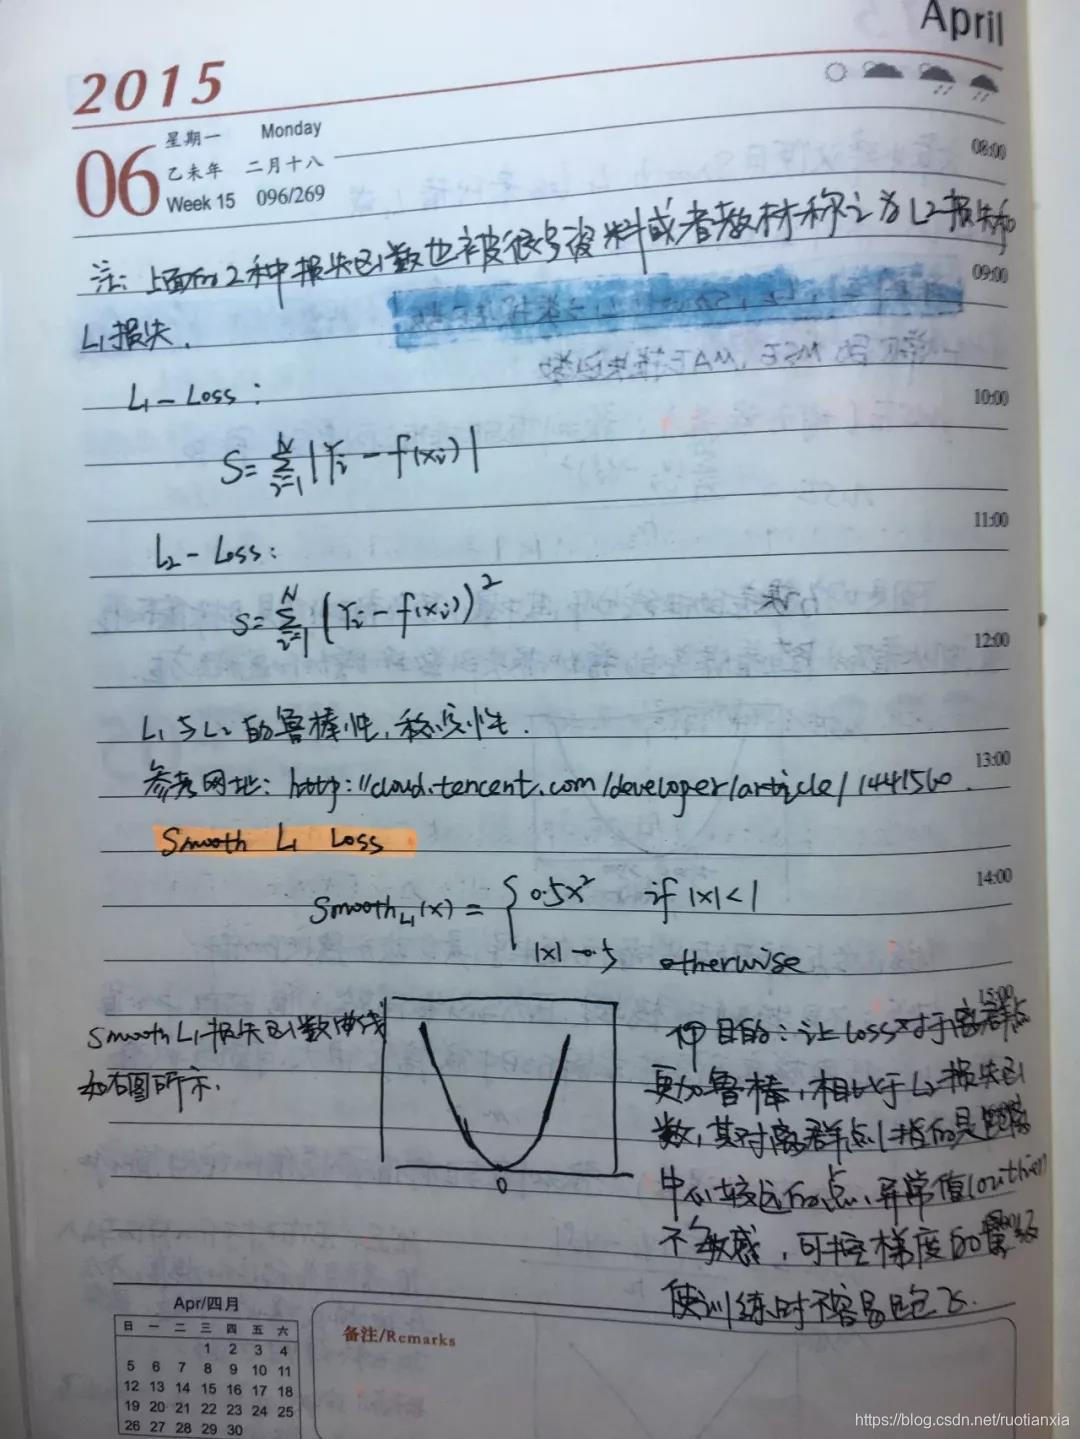 April
2015
06
星期一 Monday
乙未年 二月十八
Week 15 096/269
08:00
注: 上面的2种损失函数也被很多资料或者教材称之为L2损失和
09:00
L1损失.
L1-Loss:
10:00
S=∑_{i=1}^{N}|Yi-f(xi)|
11:00
L2-Loss:
S=∑_{i=1}^{N}(Yi-f(xi))^2
12:00
L1与L2的鲁棒性,稳定性.
13:00
参考网址: http://cloud.tencent.com/developer/article/1441560.
Smooth L1 Loss
14:00
Smooth_{L1}(x) = { 0.5x^2 if |x|<1
|x|-0.5 otherwise
15:00
Smooth L1损失函数曲线
如右图所示.
0
目的:让Loss对于离群点
更加鲁棒,相比于L2损失函
数,其对离群点(指的是距离
中心较远的点)、异常值(outlier)
不敏感,可控梯度的量级
使训练时不容易跑飞.
Apr/四月
日 一 二 三 四 五 六
1 2 3 4
5 6 7 8 9 10 11
12 13 14 15 16 17 18
19 20 21 22 23 24 25
26 27 28 29 30
备注/Remarks
https://blog.csdn.net/ruotianxia